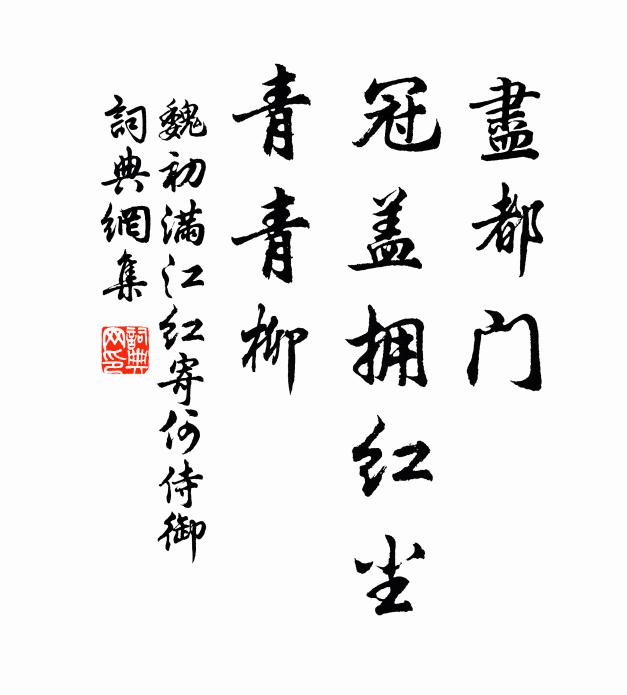 盡都门
冠盖拥红尘
青青柳
魏初满江红寄何侍御
詞典網集
詞典
网印